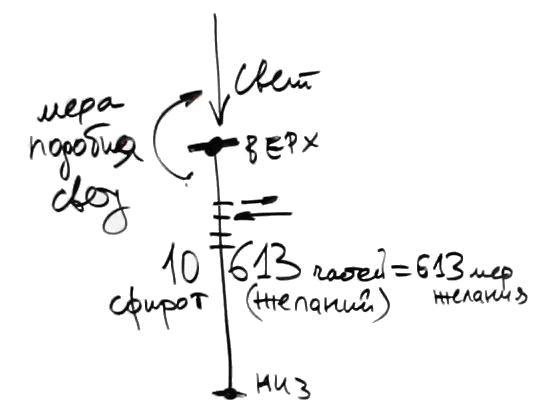 свет
мера
подобия
свету
ВЕРХ
10 613 частей = 613 мер
сфирот (желаний) желания
низ